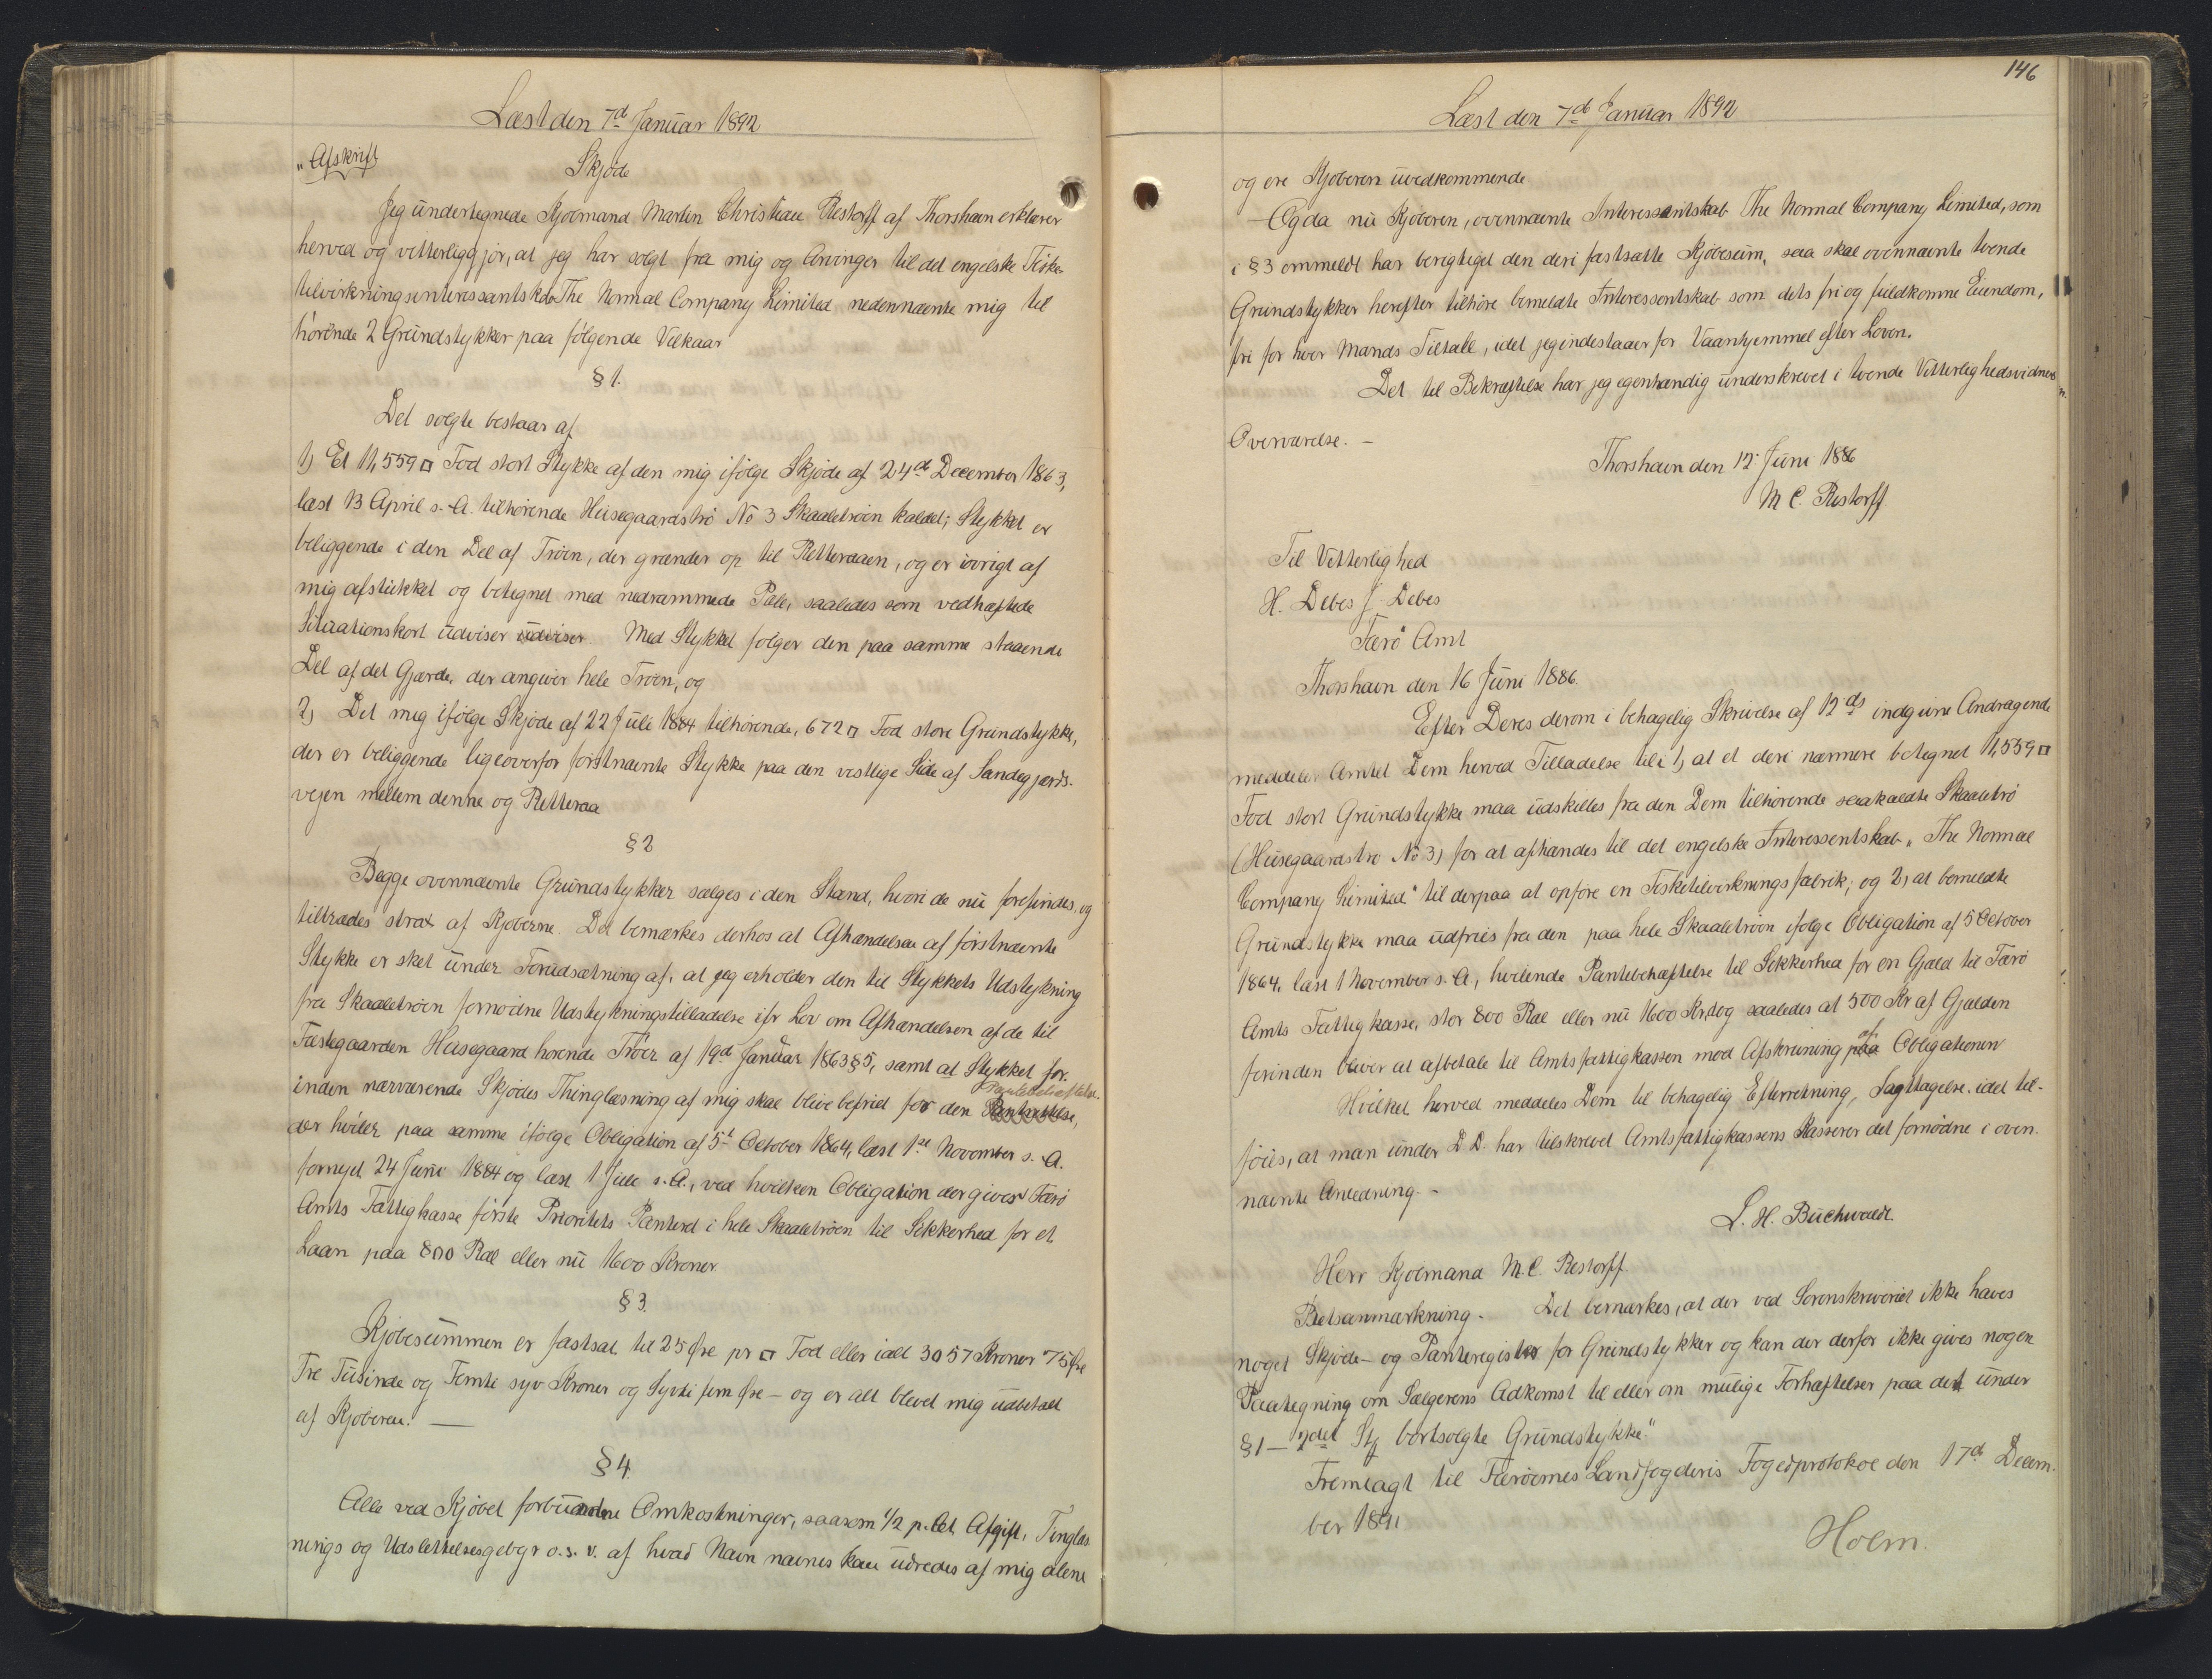 Læst den 7d Januar 1892
"Afskrift
Skjøde
Jeg undertegnede Kjøbmand Martin Christian Restorff af Thorshavn erklærer
herved og vitterliggjør, at jeg har solgt fra mig og Arvinger til det engelske Fiske-
tilvirkningsinteressantskab The Normal Company Limited nedennævnte mig til
hørende 2 Grundstykker paa følgende Vilkaar
§ 1.
Det solgte bestaar af
1) Et 11,559 □ Fod stort Stykke af den mig ifølge Skjøde af 24de December 1863,
læst 13 April s. A. tilhørende Husegaardstrø No 3 Skaaletrøen kaldet; Stykket er
beliggende i den Del af Trøen, der grændser op til Retteraaen, og er iøvrigt af
mig afstukket og betegnet med nedrammede Pæle, saaledes som vedhæftede
Situationskort udviser udviser. Med Stykket følger den paa samme staaende
Del af det Gjærde, der angiver hele Trøen, og
2) Det mig ifølge Skjøde af 22 Juli 1884 tilhørende, 672 □ Fod store Grundstykke,
der er beliggende ligeoverfor førstnævnte Stykke paa den vestlige Side af Sandegjærds-
vejen mellem denne og Retteraa
§ 2
Begge ovennævnte Grundstykker sælges i den Stand, hvori de nu forefindes, og
tiltrædes strax af Kjøberne. Det bemærkes derhos at Afhændelsen af førstnævnte
Stykke er sket under Forudsætning af, at jeg erholder den til Stykkets Udstykning
fra Skaaletrøen fornødne Udstykningstilladelse ifr Lov om Afhændelsen af de til
Fæstegaarden Husegaard hørende Trøer af 19d Januar 1863 § 5, samt at Stykket for-
inden nærværende Skjødes Thinglæsning af mig skal blive befriet for den Pantebehæftelse,
der hviler paa samme ifølge Obligation af 5t October 1864, læst 1ste November s. A.
fornyet 24 Juni 1884 og læst 1 Juli s. A., ved hvilken Obligation der gives Færø
Amts Fattigkasse første Prioritets Panteret i hele Skaaletrøen til Sikkerhed for et
Laan paa 800 Rdl eller nu 1600 Kroner
§ 3.
Kjøbesummen er fastsat til 25 Øre pr □ Fod eller ialt 3057 Kroner 75 Øre
Tre Tusinde og Femti syv Kroner og Syvti fem Øre – og er alt blevet mig udbetalt
af Kjøberen. —
§ 4
Alle ved Kjøbet forbundne Omkostninger, saasom 1/2 p. Ct. Afgift, Tinglæs
nings og Udslettelsesgebyr o. s. v. af hvad Navn nævnes kan udredes af mig alene
146
Læst den 7de Januar 1892
og ere Kjøberen uvedkommende
– Og da nu Kjøberen, ovennævnte Interessentskab The Normal Company Limited, som
i § 3 ommeldt har berigtiget den deri fastsatte Kjøbesum, saa skal ovennævnte tvende
Grundstykker herefter tilhøre bemeldte Interessentskab som dets fri og fuldkomne Eiendom,
fri for hver Mands Tiltale, idet jeg indestaaer for Vaanhjemmel efter Loven.
Det til Bekræftelse har jeg egenhændig underskrevet i tvende Vitterlighedsvidners
Overværelse. –
Thorshavn den 12 Juni 1886
M C. Restorff
Til Vitterlighed
H. Debes J. Debes
Færø Amt
Thorshavn den 16 Juni 1886.
Efter Deres derom i behagelig Skrivelse af 12 ds indgivne Andragende
meddeler Amtet Dem herved Tilladelse til: 1) at et deri nærmere betegnet 11,559 □
Fod stort Grundstykke maa udskilles fra den Dem tilhørende saakaldte Skaaletrø
(Husegaardstrø No 3) for at afhændes til det engelske Interessentskab „The Normal
Company Limited" til derpaa at opføre en Fisketilvirkningsfabrik; og 2) at bemeldte
Grundstykke maa udfries fra den paa hele Skaaletrøen ifølge Obligation af 5 October
1864, læst 1 November s. A., hvilende Pantebehæftelse til Sikkerhed for en Gjæld til Færø
Amts Fattigkasse, stor 800 Rdl eller nu 1600 Kr, dog saaledes at 500 Kr af Gjælden
forinden bliver at afbetale til Amtsfattigkassen mod Afskrivning paa af Obligationen
Hvilket herved meddeles Dem til behagelig Efterretning, Iagttagelse, idet til-
føies, at man under D. D. har tilskrevet Amtsfattigkassens Kasserer det fornødne i oven-
nævnte Anledning. –
L. H. Buchwaldt.
Herr Kjøbmand M. C. Restorff.
Retsanmærkning. Det bemærkes, at der ved Sorenskriveriet ikke haves
noget Skjøde- og Panteregister for Grundstykker og kan der derfor ikke gives nogen
Paategning om Sælgerens Adkomst til eller om mulige Forhæftelser paa det under
§ 1 – 2det Stk bortsolgte Grundstykke."
Fremlagt til Færøernes Landfogderis Fogedprotokol den 17d Decem-
ber 1891
Holm.